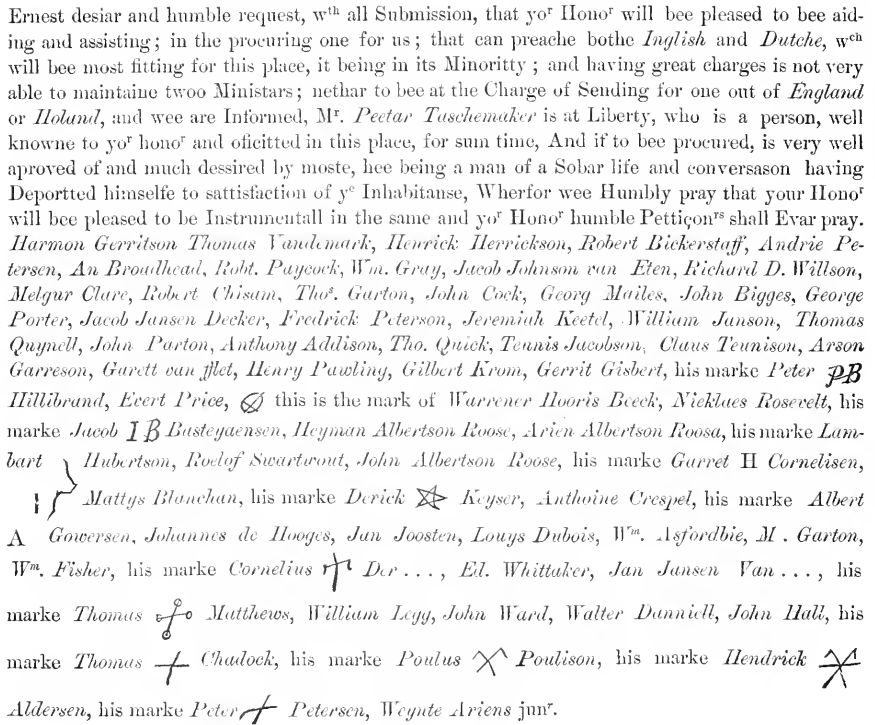 Ernest desiar and humble request, wth all Submission, that yor Honor will bee pleased to bee aid-
ing and assisting; in the procuring one for us; that can preache bothe Inglish and Dutche, wch
will bee most fitting for this place, it being in its Minoritty; and having great charges is not very
able to maintaine twoo Ministars; nethar to bee at the Charge of Sending for one out of England
or Holand, and wee are Informed, Mr. Peetar Taschemaker is at Liberty, who is a person, well
knowne to yor honor and oficitted in this place, for sum time, And if to bee procured, is very well
aproved of and much dessired by moste, hee being a man of a Sobar life and conversason having
Deportted himselfe to sattisfaction of ye Inhabitanse, Wherfor wee Humbly pray that your Honor
will bee pleased to be Instrumentall in the same and yor Honor humble Pettiçonrs shall Evar pray.
Harmon Gerritson Thomas Vandemark, Henrick Herrickson, Robert Bickerstaff, Andrie Pe-
tersen, An Broadhead, Robt. Paycock, Wm. Gray, Jacob Johnson van Eten, Richard D. Willson,
Melgur Clare, Robert Chisam, Thos. Garton, John Cock, Georg Mailes, John Bigges, George
Porter, Jacob Jansen Decker, Fredrick Peterson, Jeremiah Keetel, William Janson, Thomas
Quynell, John Parton, Anthony Addison, Tho. Quick, Teunis Jacobson, Claus Teunison, Arson
Garreson, Garett van fflet, Henry Pawling, Gilbert Krom, Gerrit Gisbert, his marke Peter PB
Hillibrand, Evert Price, this is the mark of Warrener Hooris Beeck, Nicklaes Rosevelt, his
marke Jacob I B Basteyaensen, Heyman Albertson Roose, Arien Albertson Roosa, his marke Lam-
bart Hubertson, Roelof Swartwout, John Albertson Roose, his marke Garret H Cornelisen,
Mattys Blanchan, his marke Derick Keyser, Anthoine Crespel, his marke Albert
A Gowersen, Johannes de Hooges, Jan Joosten, Louys Dubois, Wm. Asfordbie, M. Garton,
Wm. Fisher, his marke Cornelius Der ..., Ed. Whittaker, Jan Jansen Van ..., his
marke Thomas Matthews, William Legg, John Ward, Walter Danniell, John Hall, his
marke Thomas Chadock, his marke Poulus Poulison, his marke Hendrick
Aldersen, his marke Peter Petersen, Weynte Ariens junr.